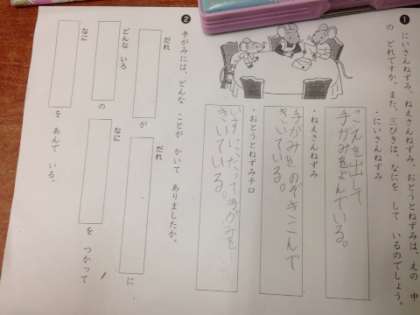 ❶ にいさんねずみ、ねえさんねずみ、おとうとねずみは、えの 中
の どれですか。また、三びきは、なにを して いるのでしょう。
・にいさんねずみ
こえを出して
手がみをよんでいる。
・ねえさんねずみ
手がみをのぞきこんで
きいている。
・おとうとねずみチロ
いすに立って手がみを
きいている。
❷ 手がみには、どんな ことが かいて ありましたか。
だれ
が
だれ
に
どんな いろ
の
なに
を つかって
なに
を あんで いる。